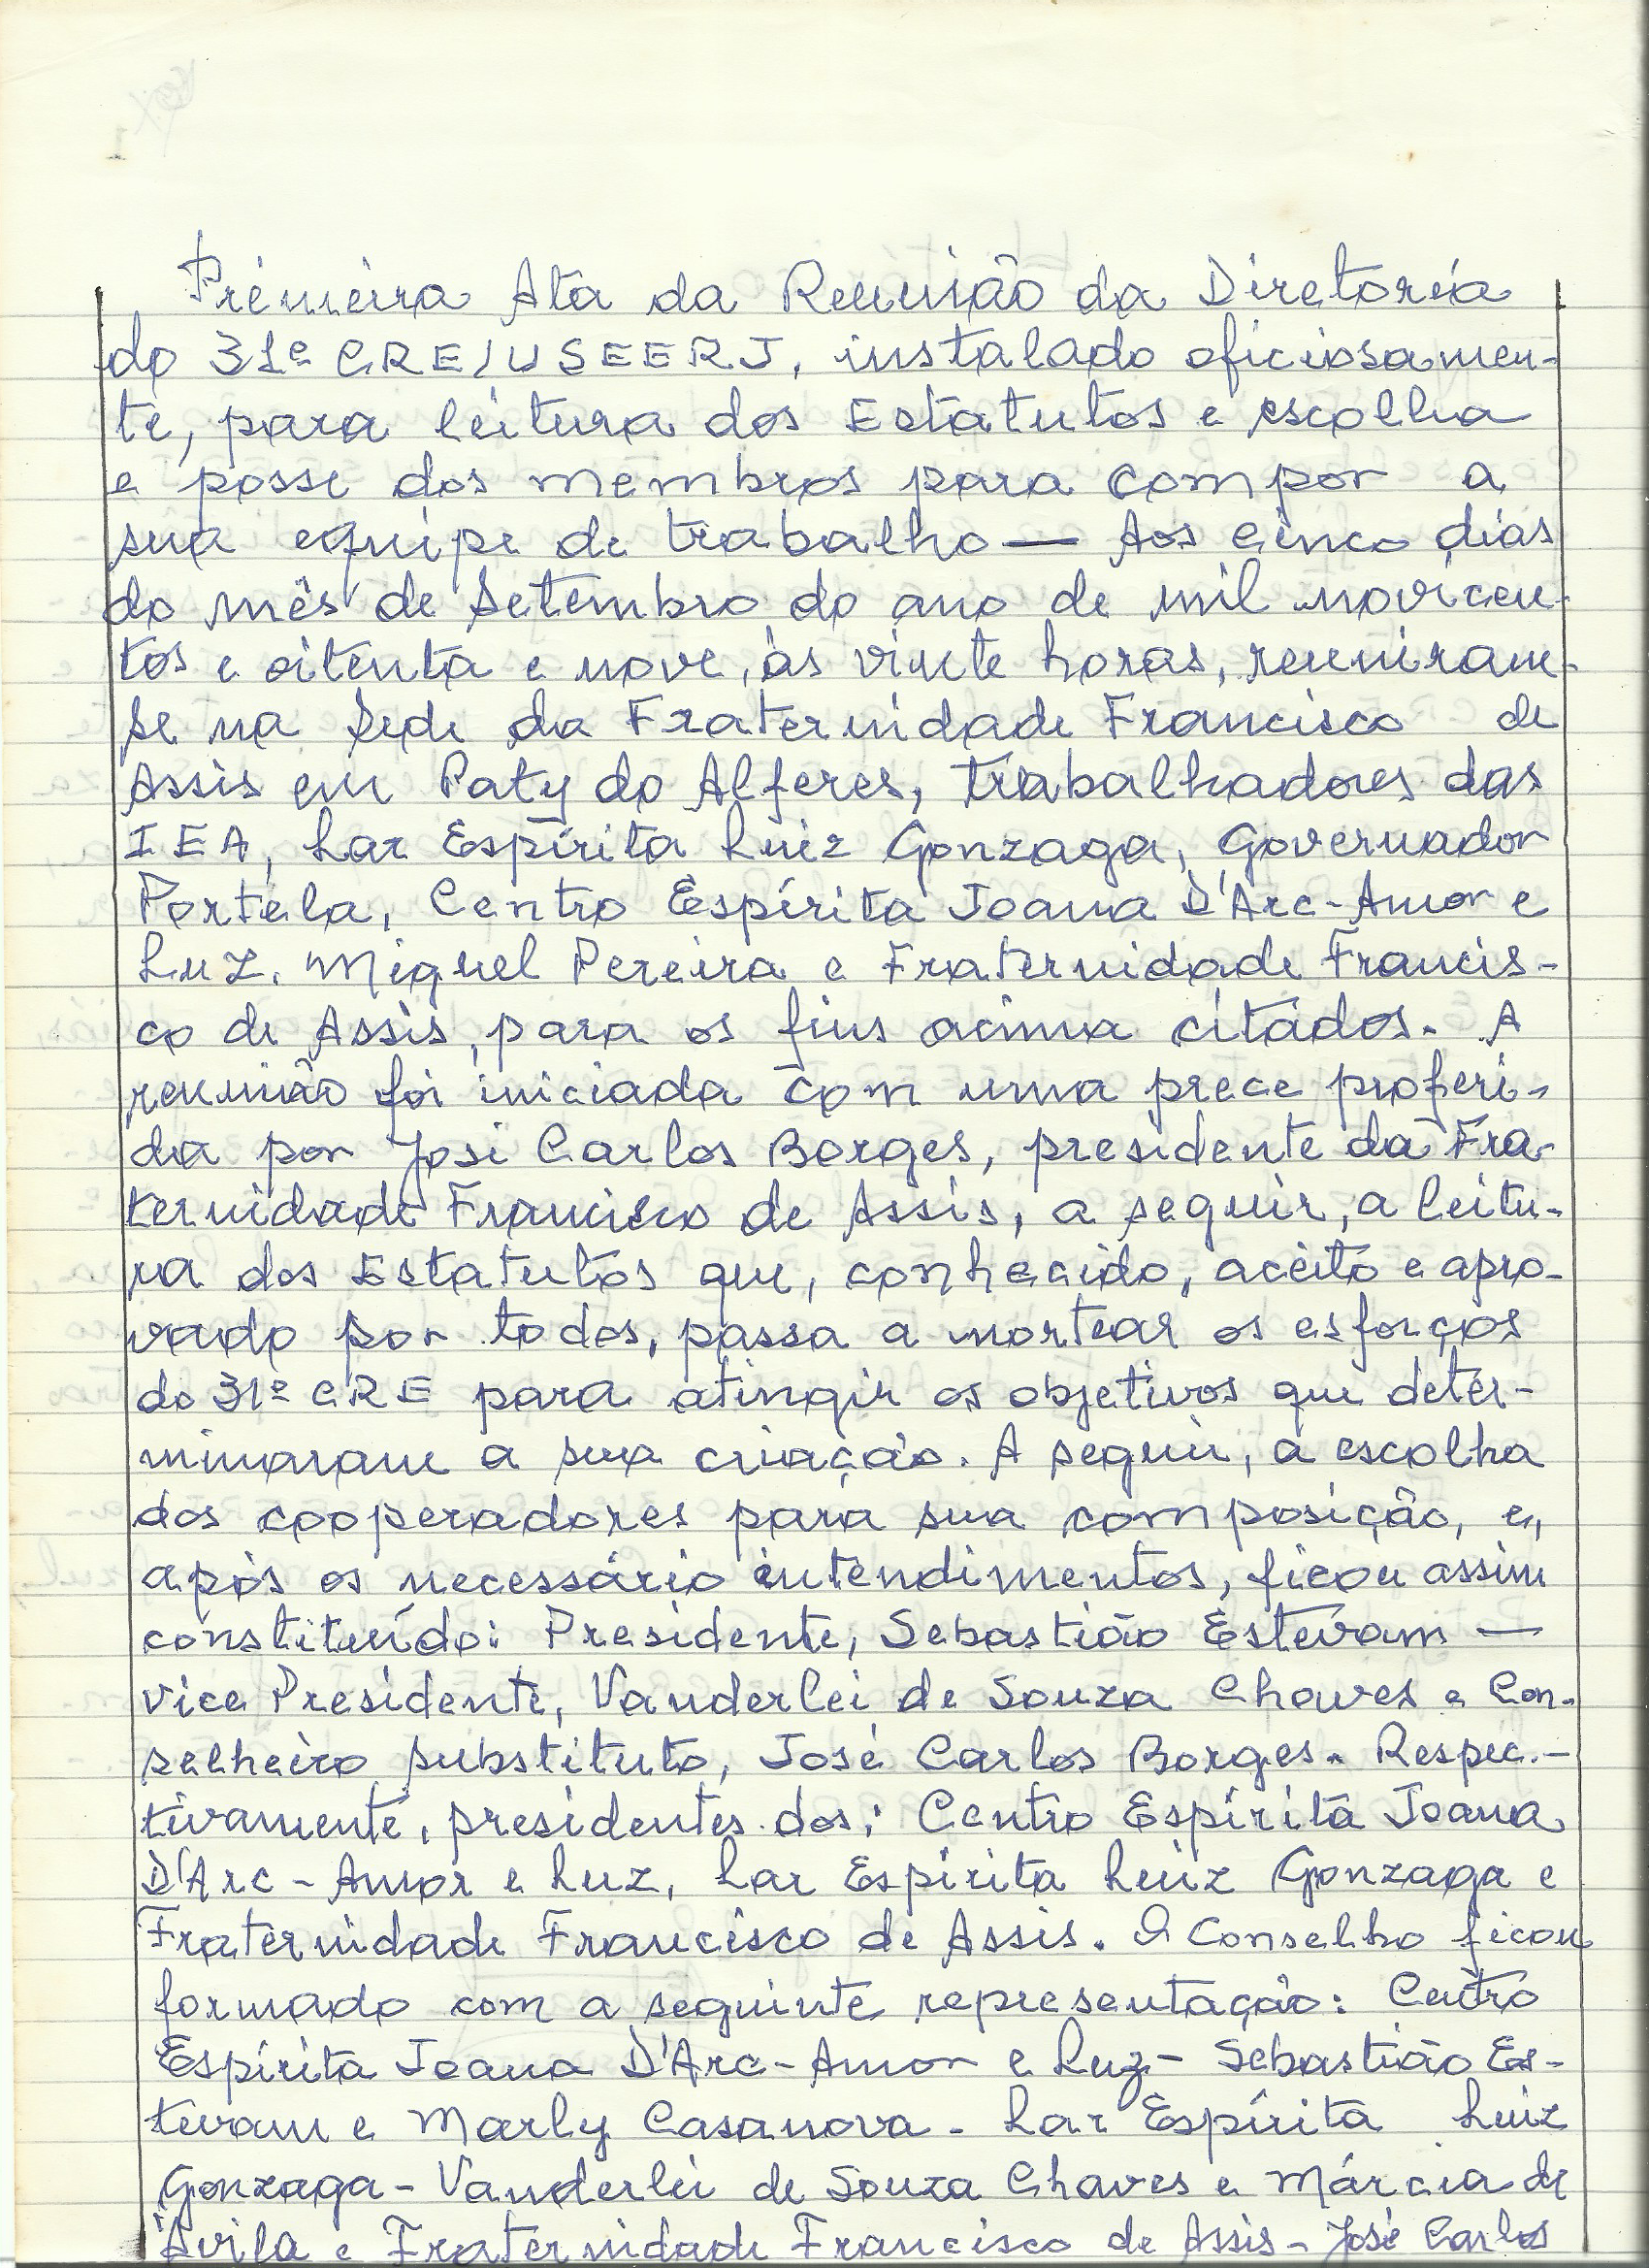 Primeira Ata da Reunião da Diretoria
do 31º CRE/USEERJ, instalado oficiosamen-
te, para leitura dos Estatutos e escolha
e posse dos membros para compor a
sua equipe de trabalho — Aos cinco dias
do mês de Setembro do ano de mil novicen-
tos e oitenta e nove, às vinte horas, reuniram-
se na Sede da Fraternidade Francisco de
Assis em Paty do Alferes, trabalhadores das
IEA, Lar Espírita Luiz Gonzaga, Governador
Portela, Centro Espírita Joana D'Arc-Amor e
Luz. Miguel Pereira e Fraternidade Francis-
co de Assis, para os fins acima citados. A
reunião foi iniciada com uma prece proferi-
da por José Carlos Borges, presidente da Fra-
ternidade Francisco de Assis, a seguir, a leitu-
ra dos Estatutos que, conhecido, aceito e apro-
vado por todos, passa a nortear os esforços
do 31º CRE para atingir os objetivos que deter-
minaram a sua criação. A seguir, a escolha
dos cooperadores para sua composição, e,
após os necessário entendimentos, ficou assim
constituído: Presidente, Sebastião Estevam —
vice Presidente, Vanderlei de Souza Chaves e Con-
selheiro substituto, José Carlos Borges. Respec.-
tivamente, presidentes dos: Centro Espírita Joana
D'Arc - Amor e Luz, Lar Espírita Luiz Gonzaga e
Fraternidade Francisco de Assis. O Conselho ficou
formado com a seguinte representação: Centro
Espírita Joana D'Arc-Amor e Luz - Sebastião Es-
tevam e Marly Casanova - Lar Espírita Luiz
Gonzaga - Vanderlei de Souza Chaves e Márcia de
Ávila e Fraternidade Francisco de Assis - José Carlos